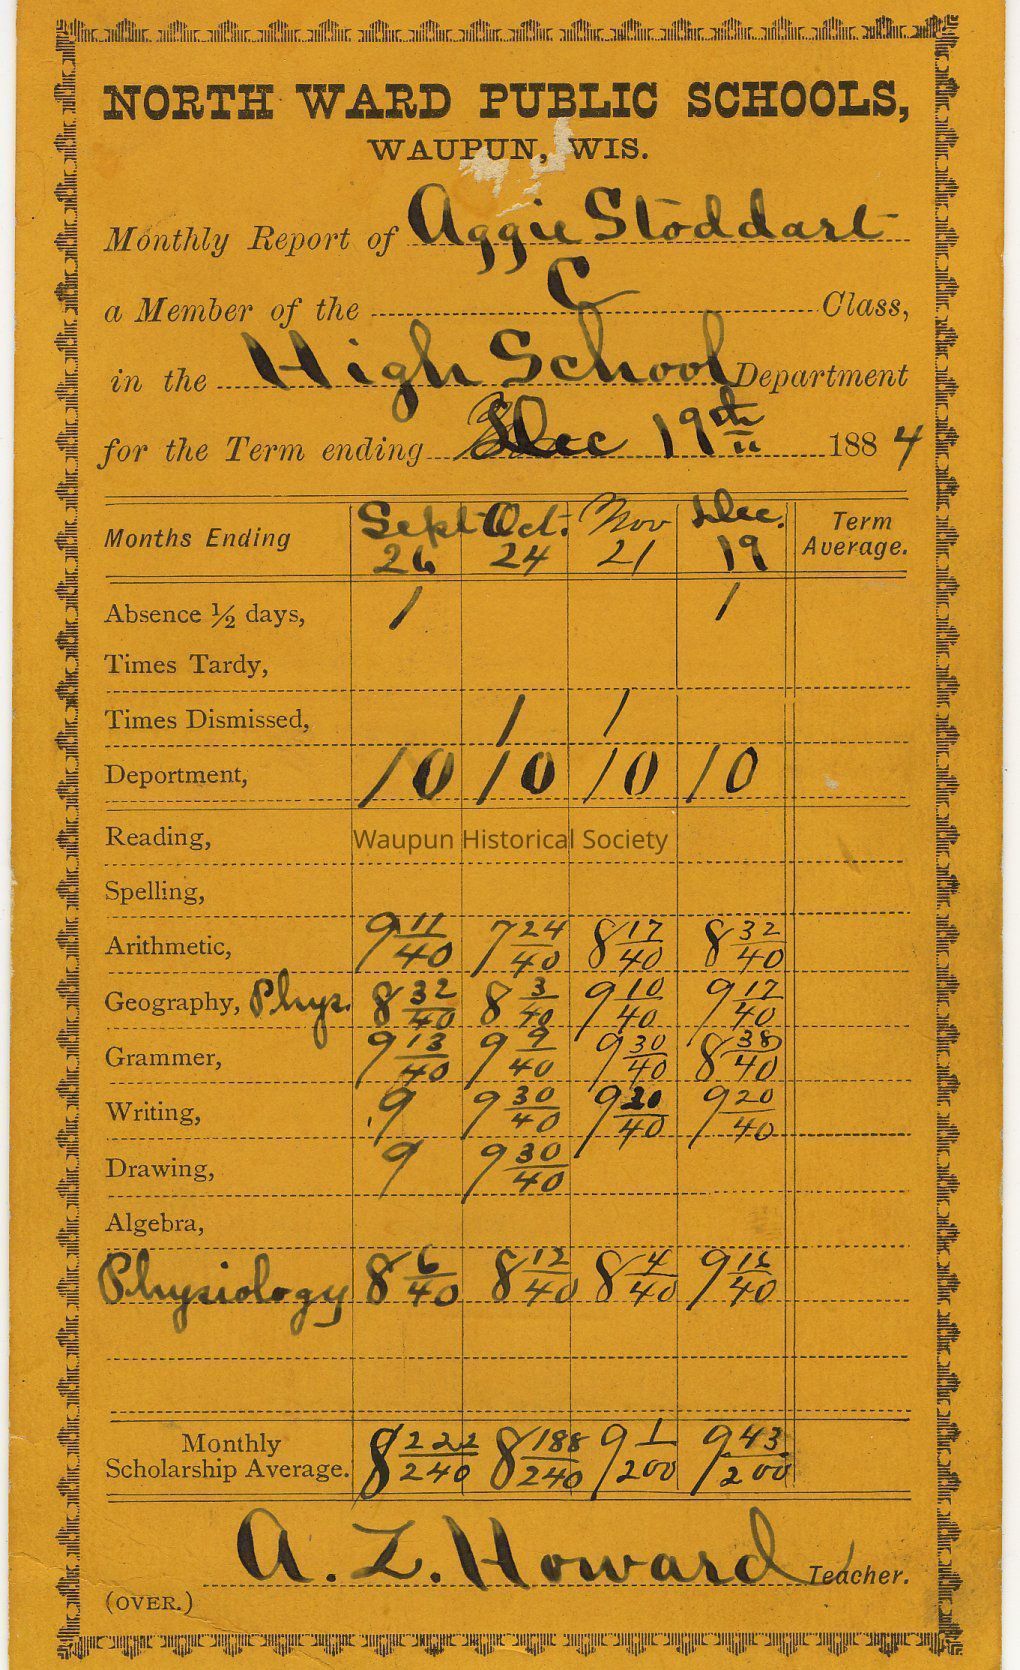 NORTH WARD PUBLIC SCHOOLS,
WAUPUN, WIS.
Monthly Report of Aggie Stoddart
a Member of the C Class,
in the High School Department
for the Term ending Dec 19th 1884
Months Ending Sept 26 Oct. 24 Nov 21 Dec. 19 Term Average.
Absence ½ days, 1 1
Times Tardy,
Times Dismissed, 1 1
Deportment, 10 10 10 10
Reading,
Waupun Historical Society
Spelling,
Arithmetic, 9 11/40 7 24/40 8 17/40 8 32/40
Geography, Phys. 8 32/40 8 3/40 9 10/40 9 17/40
Grammer, 9 13/40 9 9/40 9 30/40 8 38/40
Writing, 9 9 30/40 9 20/40 9 20/40
Drawing, 9 9 30/40
Algebra,
Physiology 8 6/40 8 12/40 8 4/40 9 16/40
Monthly Scholarship Average. 8 222/240 8 188/240 9 1/200 9 43/200
A. Z. Howard Teacher.
(OVER.)